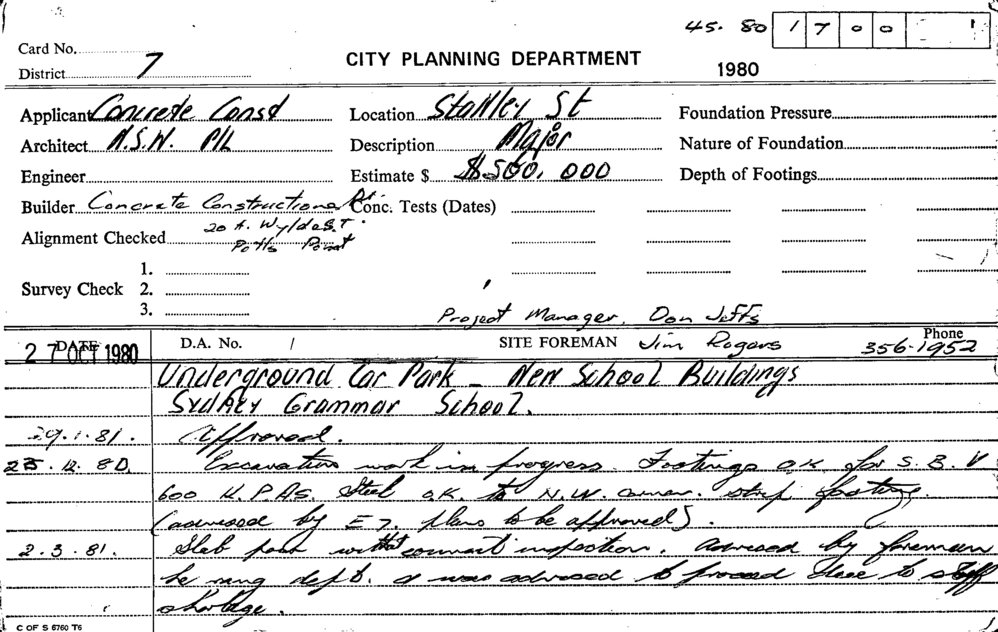 45. 80 1 7 0 0
Card No.
District 7
CITY PLANNING DEPARTMENT
1980
Applicant Concrete Const
Location Stanley St
Foundation Pressure
Architect N.S.W. P/L
Description Major
Nature of Foundation
Engineer
Estimate $ $500,000
Depth of Footings
Builder Concrete Constructions
Conc. Tests (Dates)
20 A. Wylde St.
Alignment Checked Potts Point
1.
Survey Check 2.
3.
Project Manager, Don Jeffs
27 OCT 1980 DATE
D.A. No. /
SITE FOREMAN Jim Rogers
Phone 356-1952
Underground Car Park - New School Buildings
Sydney Grammar School.
29.1.81. Approved.
23.12.80. Excavation work in progress. Footings O.K. for S.B.V
600 K.P.As. Steel O.K. to N.W. corner. strip footing.
(advised by E7. plans to be approved).
2.3.81. Slab pour without inspection. Advised by foreman
he rang dept. & was advised to proceed due to staff
shortage.
C OF S 6760 T6